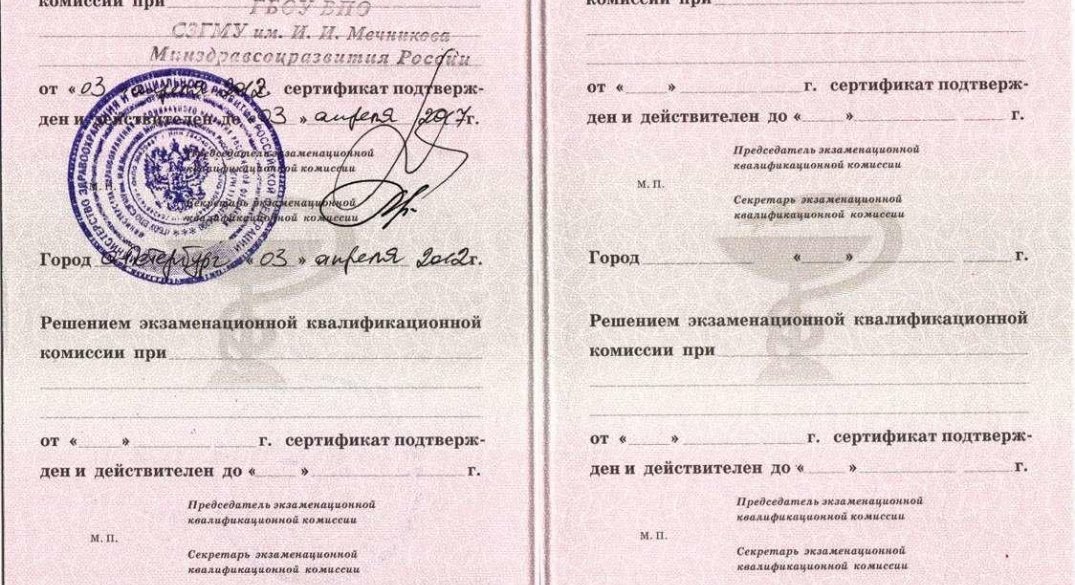 комиссии при
ГБОУ ВПО
СЗГМУ им. И. И. Мечникова
Минздравсоцразвития России
от «03 апреля 2012 г. сертификат подтверж-
ден и действителен до «03» апреля 2017г.
Председатель экзаменационной
квалификационной комиссии
М. П.
Секретарь экзаменационной
квалификационной комиссии
Город С-Петербург «03» апреля 2012г.
Решением экзаменационной квалификационной
комиссии при
от « » г. сертификат подтверж-
ден и действителен до « » г.
Председатель экзаменационной
квалификационной комиссии
М. П.
Секретарь экзаменационной
квалификационной комиссии
комиссии при
от « » г. сертификат подтверж-
ден и действителен до « » г.
Председатель экзаменационной
квалификационной комиссии
М. П.
Секретарь экзаменационной
квалификационной комиссии
Город « » г.
Решением экзаменационной квалификационной
комиссии при
от « » г. сертификат подтверж-
ден и действителен до « » г.
Председатель экзаменационной
квалификационной комиссии
М. П.
Секретарь экзаменационной
квалификационной комиссии